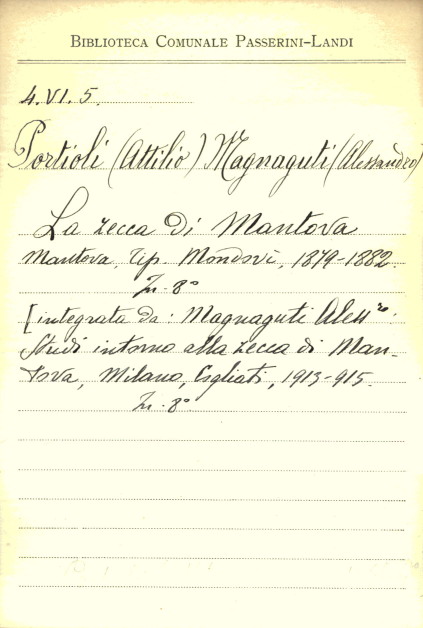 BIBLIOTECA COMUNALE PASSERINI-LANDI
4.VI.5.
Portioli (Attilio) Magnaguti (Alessandro)
La zecca di Mantova
Mantova, Tip. Mondovì, 1879-1882.
In-8°
[integrata da: Magnaguti Aless.ro.
Studi intorno alla zecca di Man-
tova, Milano, Cogliati, 1913-915.
In-8°